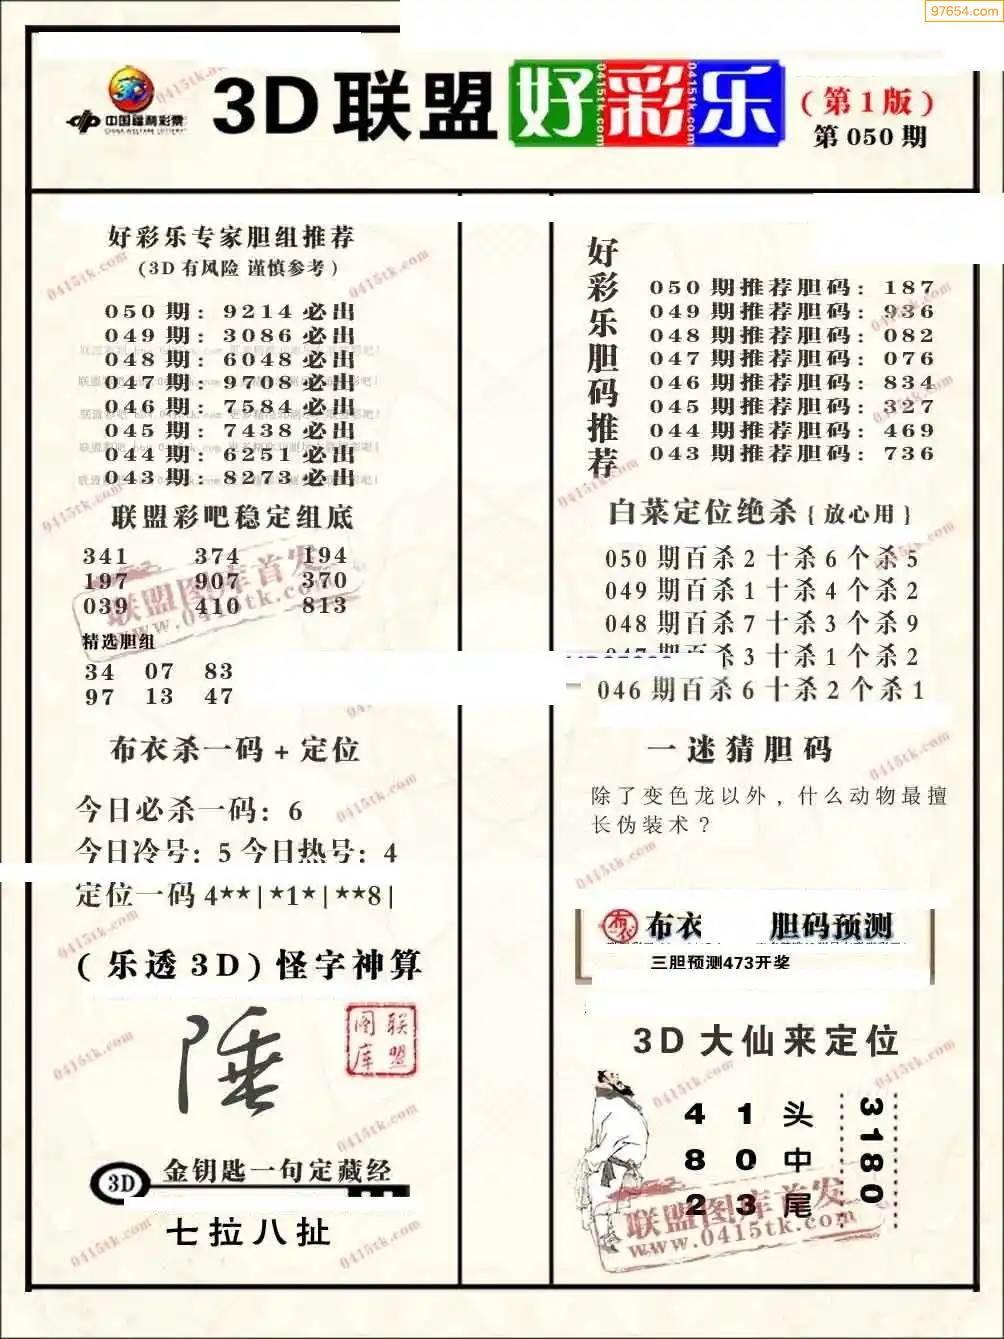 97654.com
中国福利彩票
CHINA WELFARE LOTTERY
3D联盟好彩乐
(第1版)
第050期
好彩乐专家胆组推荐
(3D有风险 谨慎参考)
050期: 9214必出
049期: 3086必出
048期: 6048必出
047期: 9708必出
046期: 7584必出
045期: 7438必出
044期: 6251必出
043期: 8273必出
联盟彩吧稳定组底
341 374 194
197 907 370
039 410 813
联盟图库首发
www.0415tk.com
精选胆组
34 07 83
97 13 47
布衣杀一码+定位
今日必杀一码: 6
今日冷号: 5 今日热号: 4
定位一码 4**|*1*|**8|
(乐透3D)怪字神算
陲
联盟图库
3D 金钥匙一句定藏经
七拉八扯
好彩乐胆码推荐
050期推荐胆码: 187
049期推荐胆码: 936
048期推荐胆码: 082
047期推荐胆码: 076
046期推荐胆码: 834
045期推荐胆码: 327
044期推荐胆码: 469
043期推荐胆码: 736
白菜定位绝杀{放心用}
050期百杀2十杀6个杀5
049期百杀1十杀4个杀2
048期百杀7十杀3个杀9
047期百杀3十杀1个杀2
046期百杀6十杀2个杀1
一迷猜胆码
除了变色龙以外，什么动物最擅
长伪装术？
布衣 胆码预测
三胆预测473开奖
3D大仙来定位
4 1 头
8 0 中
2 3 尾
3180
联盟图库首发
www.0415tk.com
0415tk.com